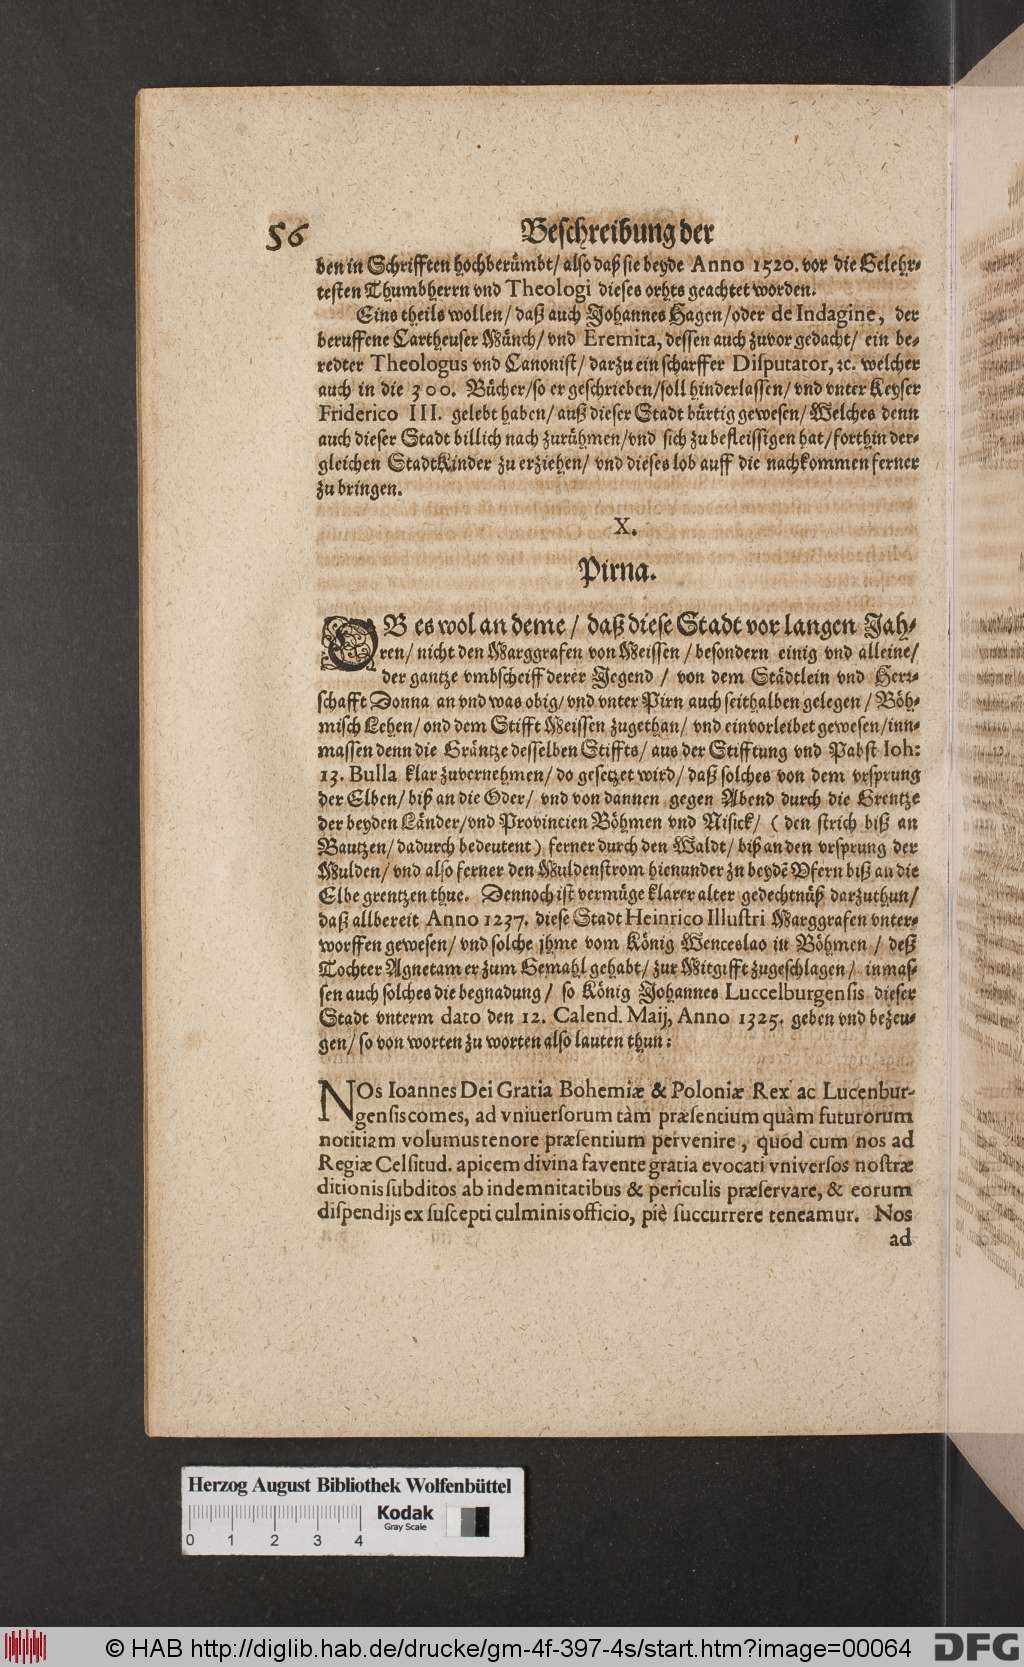 56 Beschreibung der
ben in Schrifften hochberümbt/ also daß sie beyde Anno 1520. vor die Gelehr-
testen Thumbherrn vnd Theologi dieses orhts geachtet worden.
Eins theils wollen/ daß auch Johannes Hagen/oder de Indagine, der
beruffene Cartheuser Münch/ vnd Eremita, dessen auch zuvor gedacht/ ein be-
redter Theologus vnd Canonist/ darzu ein scharffer Disputator, ꝛc. welcher
auch in die 300. Bücher/so er geschrieben/soll hinderlassen/ vnd vnter Keyser
Friderico III. gelebt haben/ auß dieser Stadt bürtig gewesen/ Welches denn
auch dieser Stadt billich nach zurühmen/vnd sich zu befleissigen hat/forthin der-
gleichen StadtKinder zu erziehen/ vnd dieses lob auff die nachkommen ferner
zu bringen.
X.
Pirna.
OB es wol an deme/ daß diese Stadt vor langen Jah-
ren/ nicht den Marggrafen von Meissen/ besondern einig vnd alleine/
der gantze vmbscheiff derer Jegend/ von dem Städtlein vnd Herr-
schafft Donna an vnd was obig/ vnd vnter Pirn auch seithalben gelegen/ Böh-
misch Lehen/ ond dem Stifft Meissen zugethan/ vnd einvorleibet gewesen/inn-
massen denn die Gräntze desselben Stiffts/ aus der Stifftung vnd Pabst Ioh:
13. Bulla klar zuvernehmen/ do gesetzet wird/ daß solches von dem vrsprung
der Elben/ biß an die Oder/ vnd von dannen gegen Abend durch die Grentze
der beyden Länder/vnd Provincien Böhmen vnd Nisick/ (den strich biß an
Bautzen/ dadurch bedeutent) ferner durch den Waldt/ biß an den vrsprung der
Mulden/ vnd also ferner den Muldenstrom hienunder zu beydẽ Vfern biß an die
Elbe grentzen thue. Dennoch ist vermüge klarer alter gedechtnüß darzuthun/
daß allbereit Anno 1237. diese Stadt Heinrico Illustri Marggrafen vnter-
worffen gewesen/ vnd solche jhme vom König Wenceslao in Böhmen/ deß
Tochter Agnetam er zum Gemahl gehabt/ zur Mitgifft zugeschlagen/ inmas-
sen auch solches die begnadung/ so König Johannes Luccelburgensis dieser
Stadt vnterm dato den 12. Calend. Maij, Anno 1325. geben vnd bezeu-
gen/ so von worten zu worten also lauten thun:
NOs Ioannes Dei Gratia Bohemiæ & Poloniæ Rex ac Lucenbur-
gensis comes, ad vniuersorum tàm præsentium quàm futurorum
notitiam volumus tenore præsentium pervenire, quòd cum nos ad
Regiæ Celsitud. apicem divina favente gratia evocati vniversos nostræ
ditionis subditos ab indemnitatibus & periculis præservare, & eorum
dispendijs ex suscepti culminis officio, piè succurrere teneamur. Nos
ad
Herzog August Bibliothek Wolfenbüttel
Kodak
Gray Scale
0 1 2 3 4
© HAB http://diglib.hab.de/drucke/gm-4f-397-4s/start.htm?image=00064
DFG